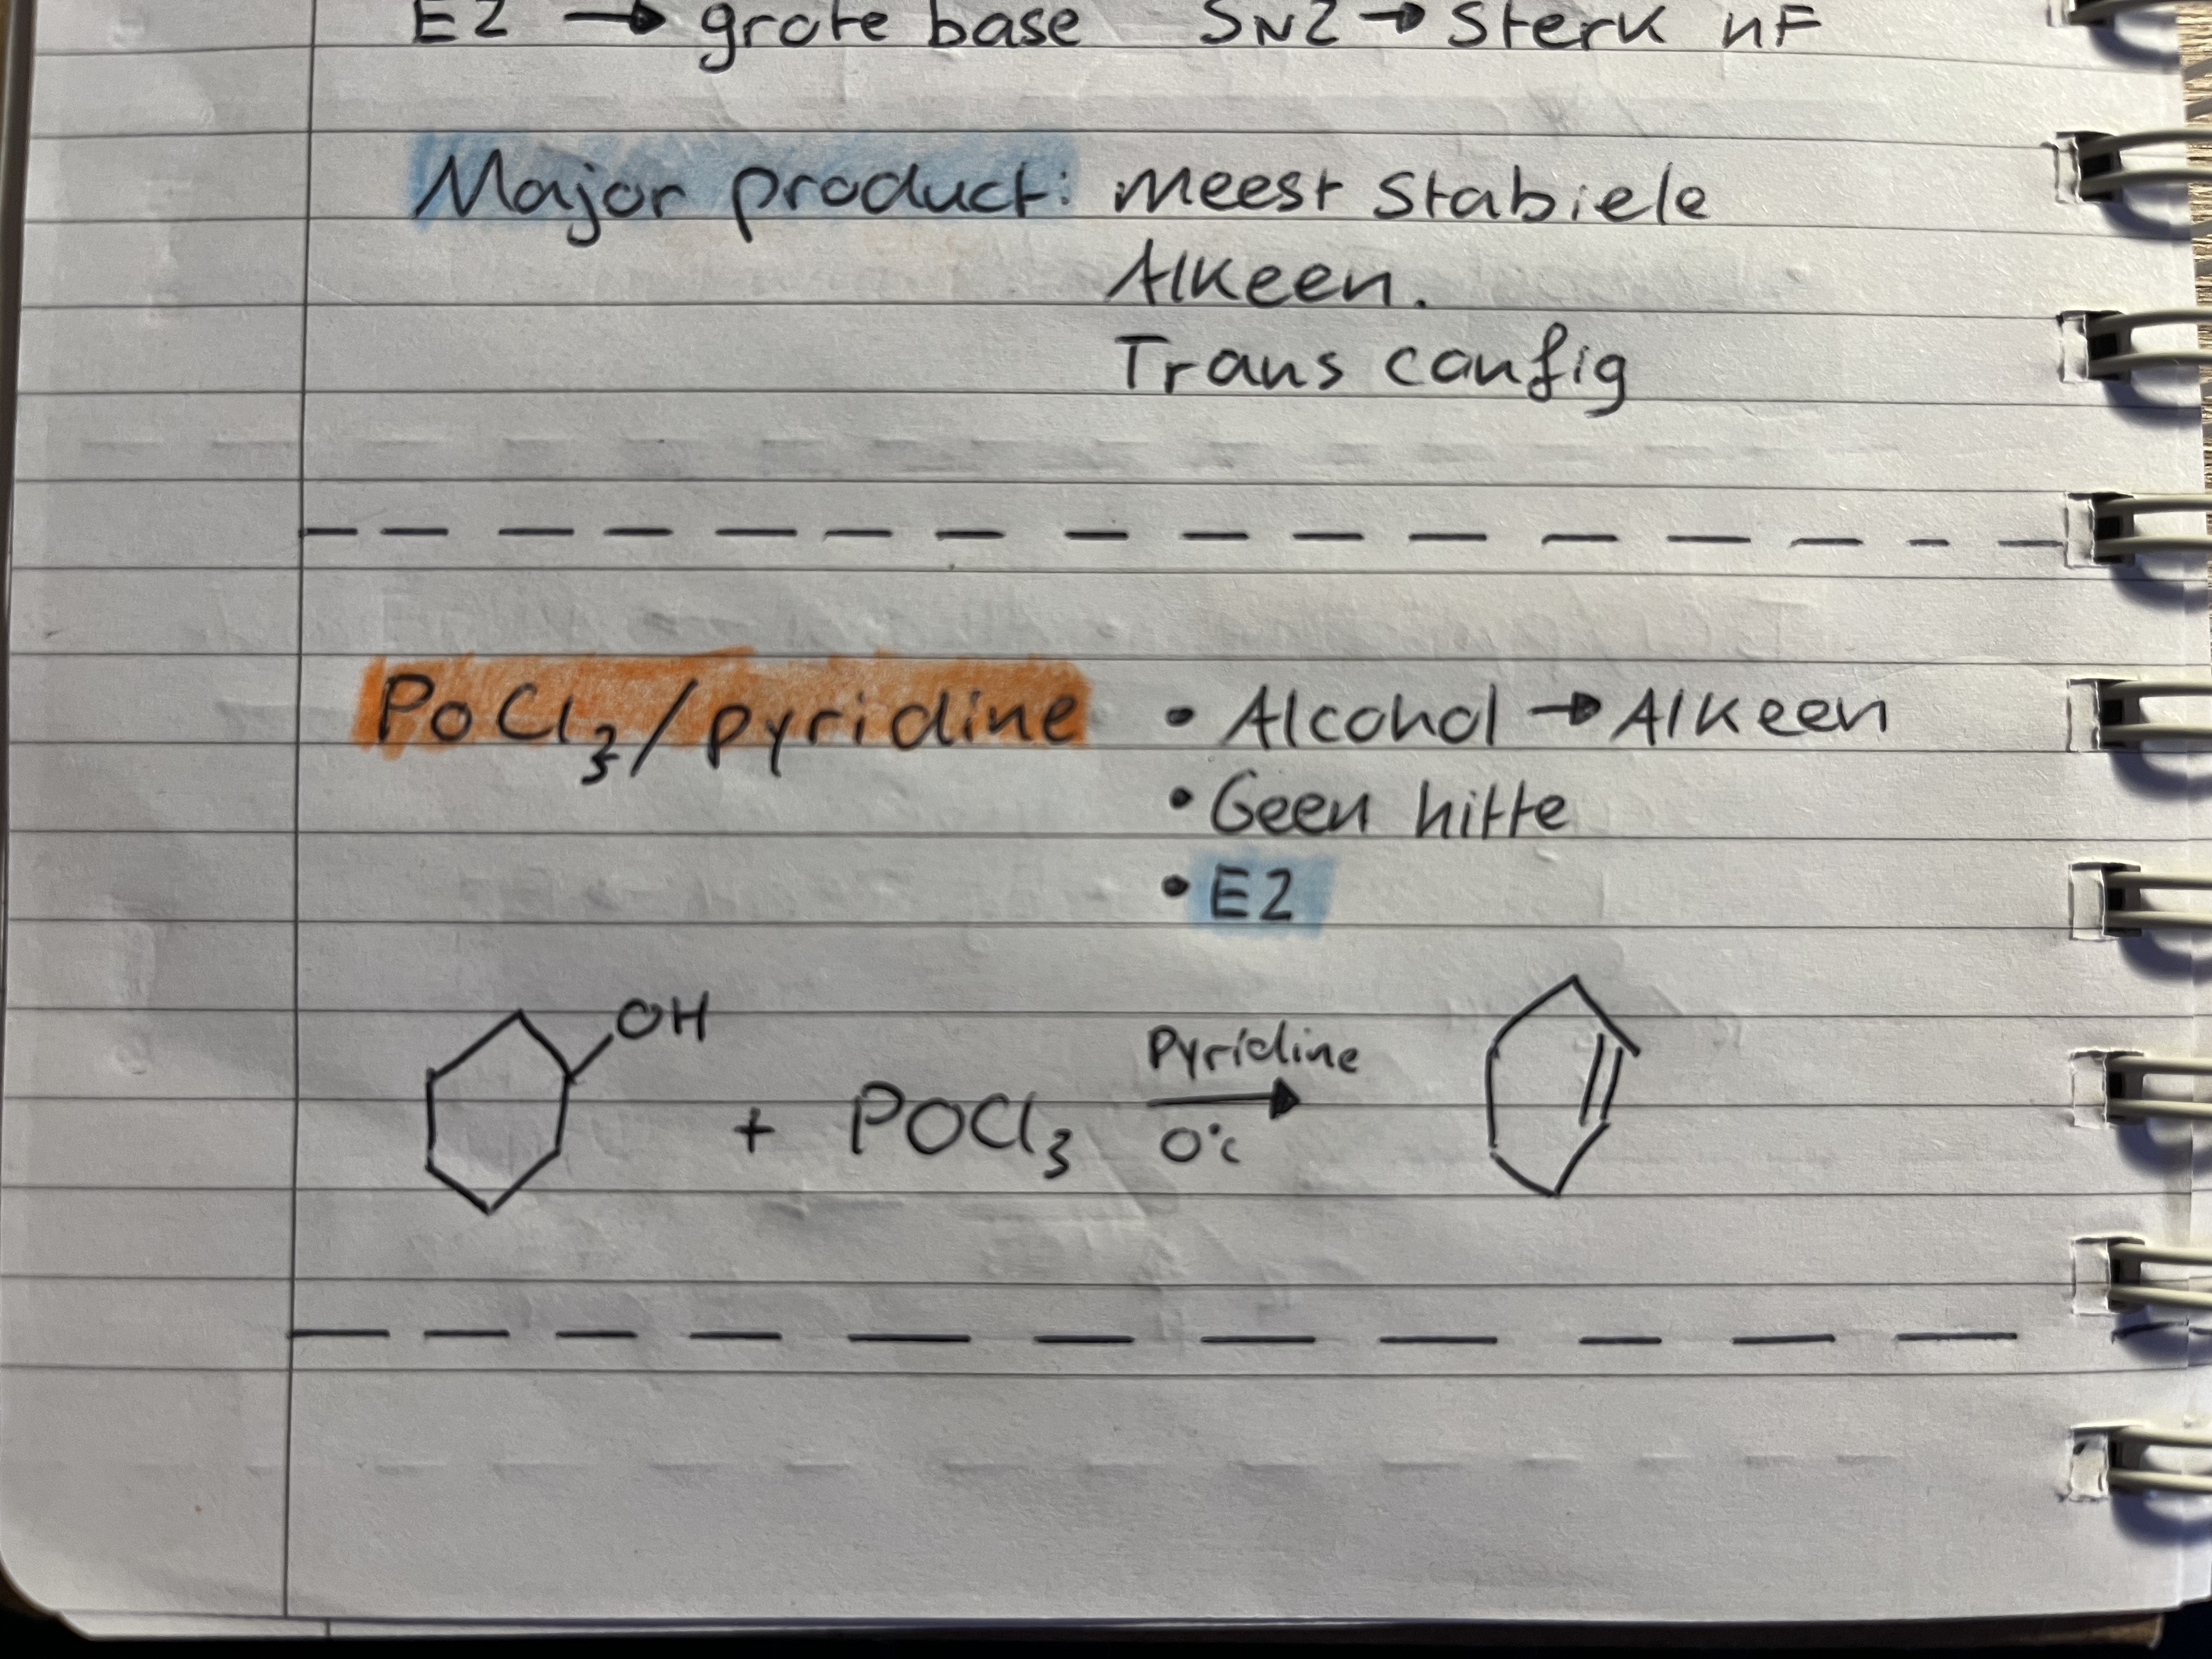 E2 → grote base SN2 → Sterk nF
Major product: meest Stabiele
Alkeen.
Trans config
PoCl3/pyridine • Alcohol → Alkeen
• Geen hitte
• E2
OH
Pyridine
+ POCl3
0°c